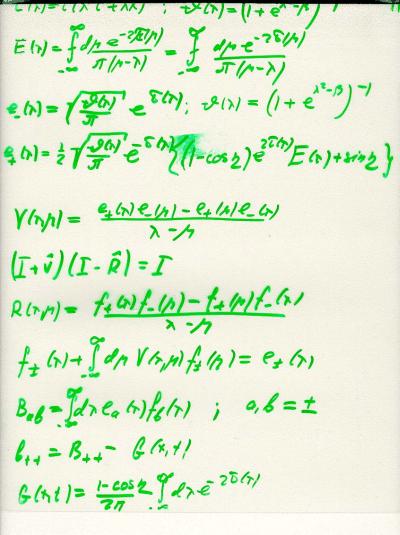 E(λ) = ∫_{-∞}^{∞} dμ e^{-2τ(μ)} / π(μ-λ) = ∫_{-∞}^{∞} dμ e^{-2τ(μ)} / π(μ-λ)
e_-(λ) = √(ϑ(λ)/π) e^{τ(λ)} ; ϑ(λ) = (1 + e^{λ²-β})^{-1}
e_+(λ) = 1/2 √(ϑ(λ)/π) e^{-τ(λ)} {(1-cosη) e^{2τ(λ)} E(λ) + sinη}
V(λ,μ) = (e_+(λ) e_-(μ) - e_+(μ) e_-(λ)) / (λ-μ)
(I + V̂)(I - R̂) = I
R(λ,μ) = (f_+(λ) f_-(μ) - f_+(μ) f_-(λ)) / (λ-μ)
f_±(λ) + ∫_{-∞}^{∞} dμ V(λ,μ) f_±(μ) = e_±(λ)
B_{ab} = ∫_{-∞}^{∞} dλ e_a(λ) f_b(λ) ; a,b = ±
b_{++} = B_{++} - G(x,t)
G(x,t) = (1-cosη)/2π ∫_{-∞}^{∞} dλ e^{-2τ(λ)}